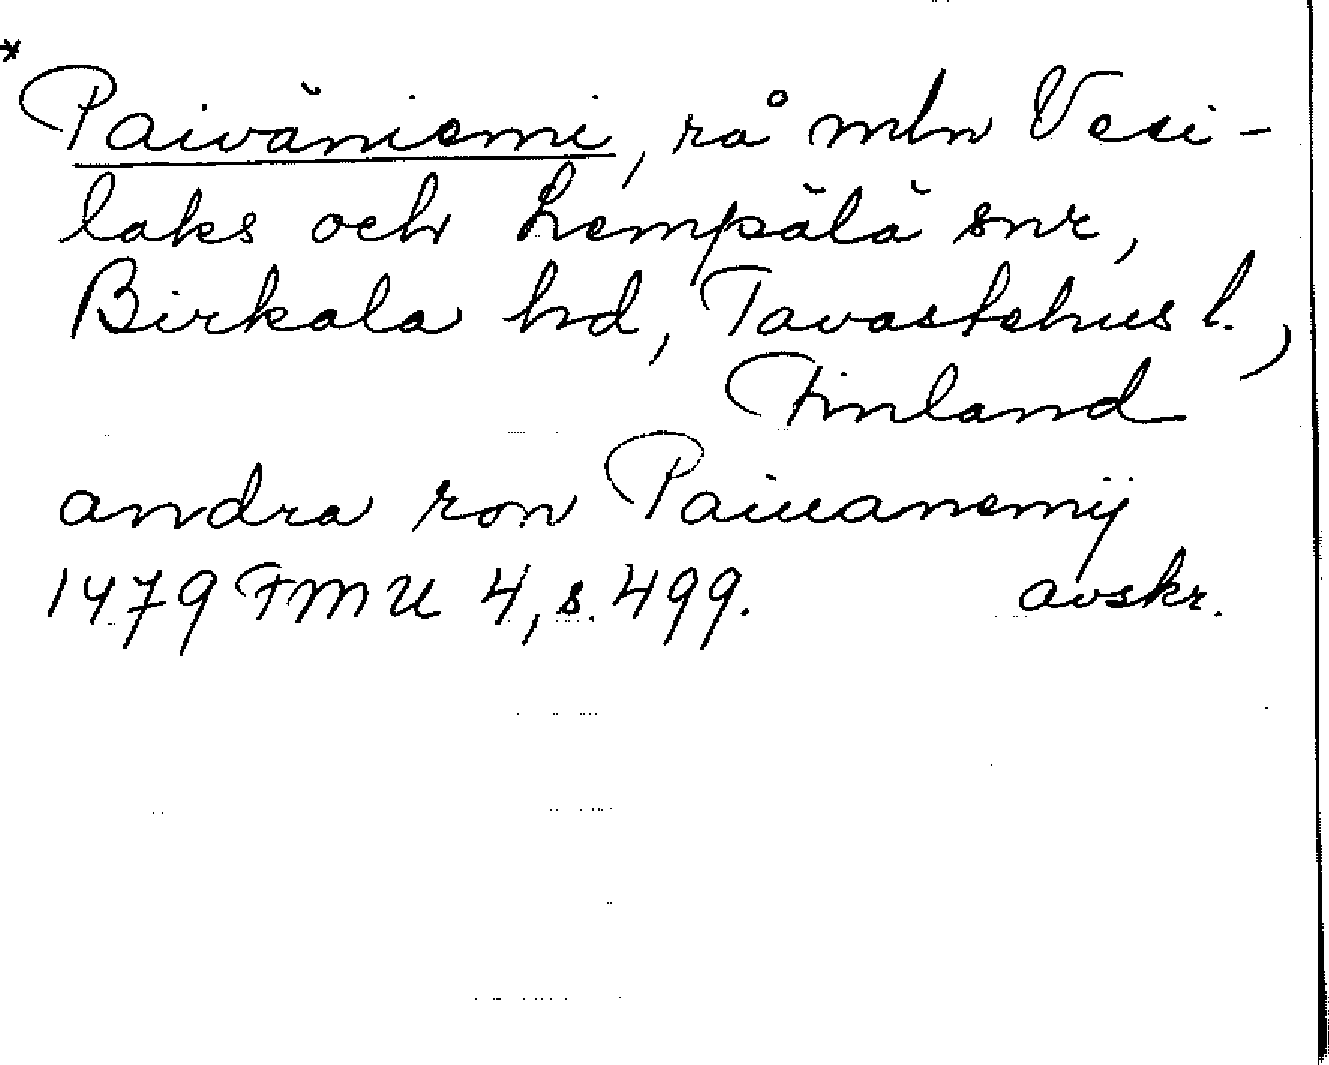 *
Paiväniemi, rå mln Vesi-
laks och Lempälä snr,
Birkala hd, Tavastehus l.,
Finland
andra ron Paiuanemÿ
1479 FMU 4, s. 499. avskr.